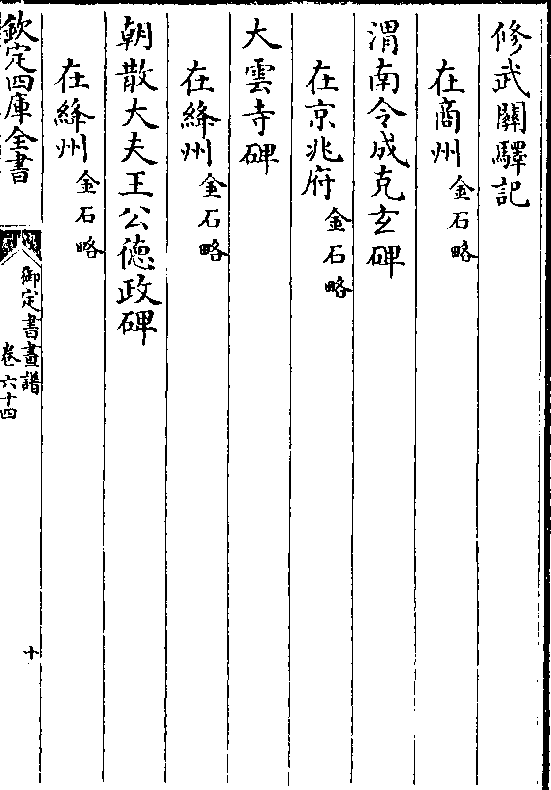 修武關驛記
在商州金石略
渭南令成克玄碑
在京兆府金石略
大雲寺碑
在絳州金石略
朝散大夫王公德政碑
在絳州金石略
欽定四庫全書
御定書畫譜
卷六十四
十